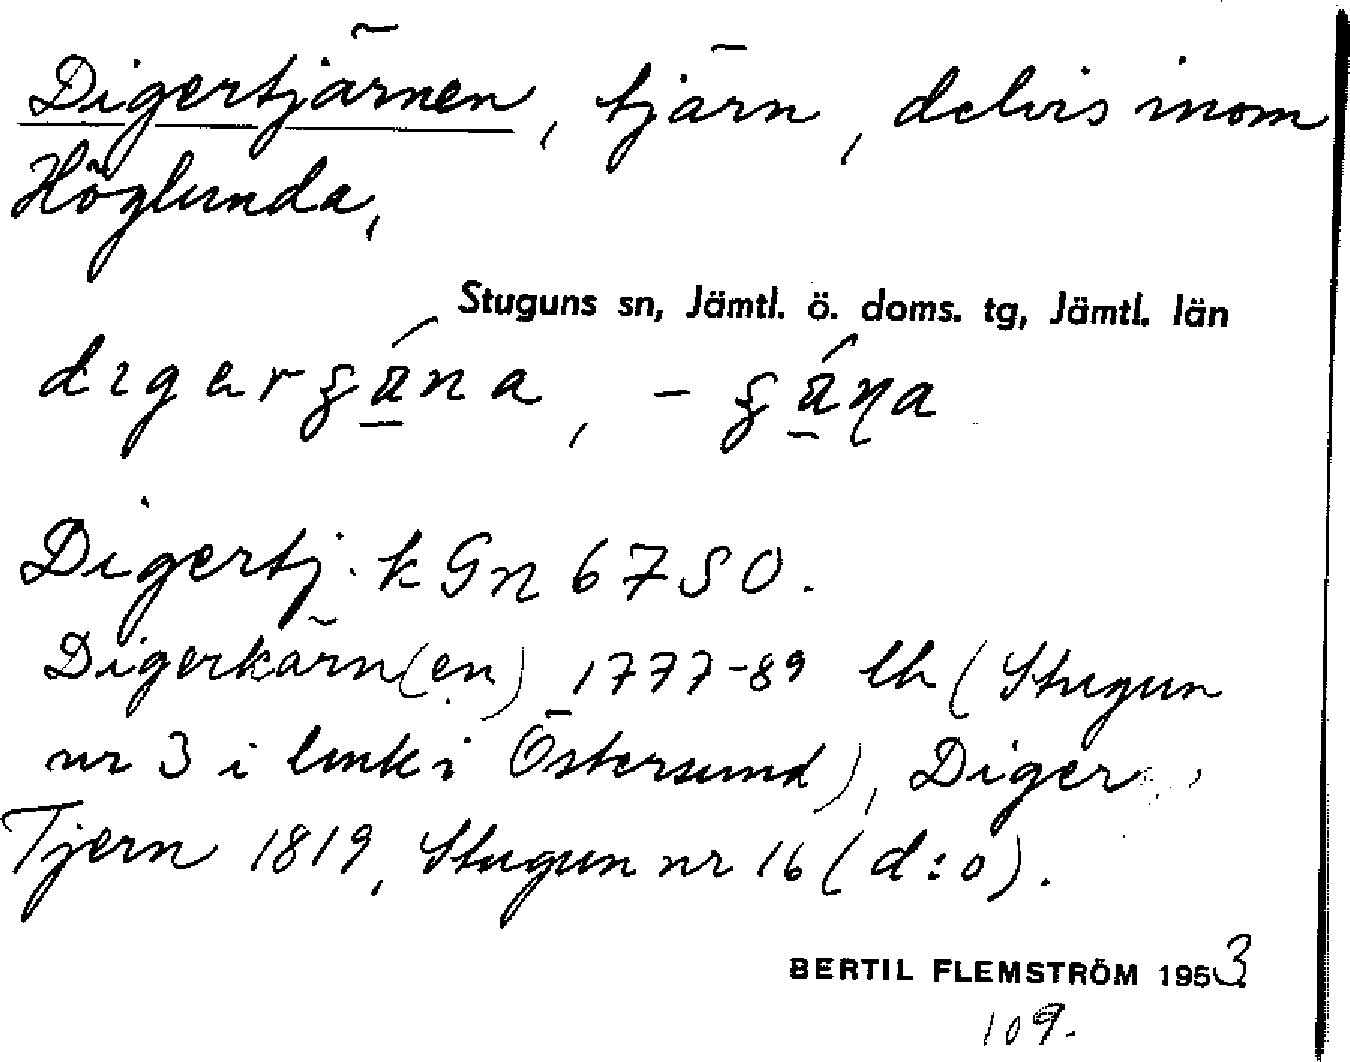 Digertjärnen, tjärn, delvis inom
Höglunda,
Stuguns sn, Jämtl. ö. doms. tg, Jämtl. län
Digertj. k Gn 67 SO.
Digerkärn(en) 1777-89 lh (Stugun
nr 3 i lmk i Östersund), Diger
Tjern 1819, Stugun nr 16 (d:o).
BERTIL FLEMSTRÖM 1953
109.